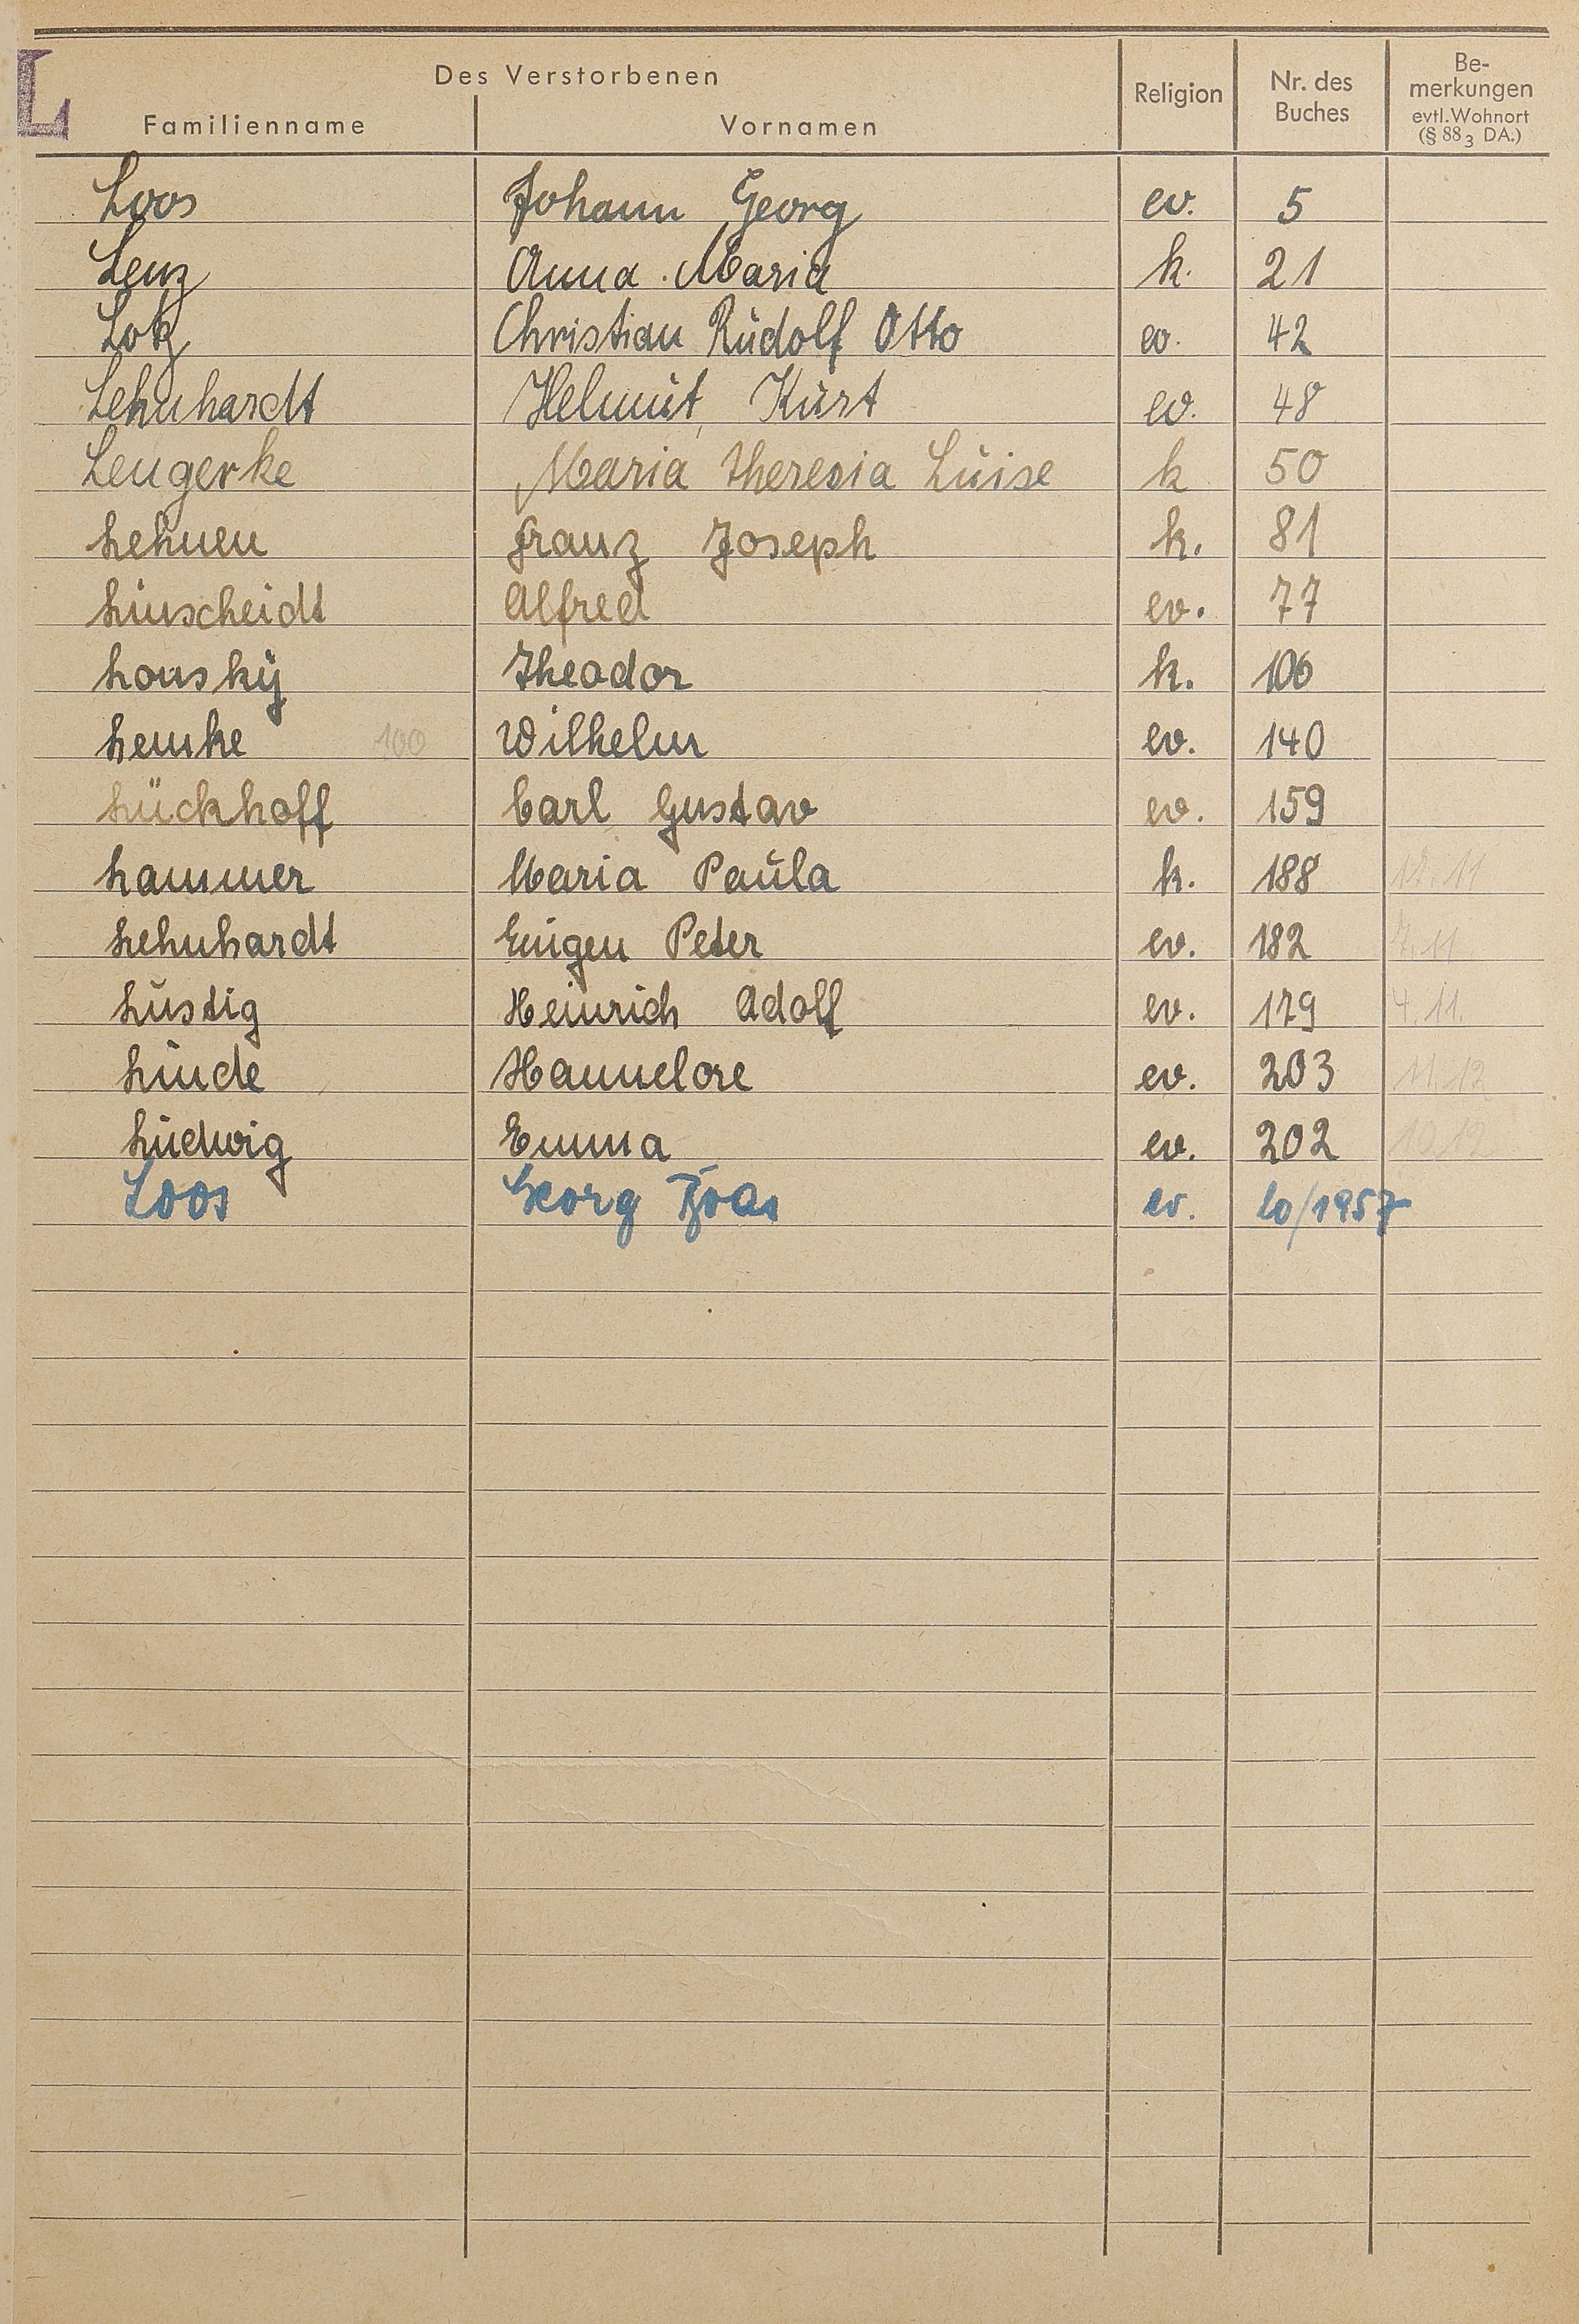 L
Des Verstorbenen
Familienname Vornamen Religion Nr. des Buches Be-merkungen evtl. Wohnort (§ 88 3 DA.)
Loos Johann Georg ev. 5
Lenz Anna Maria k. 21
Lotz Christian Rudolf Otto ev. 42
Lehnhardt Helmut, Kurt ev. 48
Lengerke Maria Theresia Luise k 50
Lehnen Franz Joseph k. 81
Linscheidt Alfred ev. 77
Lonsky Theodor k. 106
Lemke 100 Wilhelm ev. 140
Lückhoff Carl Gustav ev. 159
Lammer Maria Paula k. 188 17.11
Lehnhardt Eugen Peter ev. 182 7.11
Lustig Heinrich Adolf ev. 179 4.11.
Linde Hannelore ev. 203 11.12
Ludwig Emma ev. 202 10.12
Loos Georg ev. 10/1957